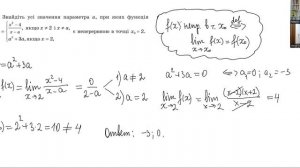 Знайдіть усі значення параметра a, при яких функція
f(x) = { (x²-4)/(x-a), якщо x ≠ 2 і x ≠ a,
a² + 3a, якщо x = 2,
є неперервною в точці x₀ = 2.
f(x) непер. в т. x₀ def⟺
lim x→x₀ f(x) = f(x₀)
= a² + 3a
f(x) = lim x→2 (x²-4)/(x-a) = 0/(2-a) < 1) a ≠ 2
2) a = 2
a² + 3a = 0 ⟺ a₁ = 0; a₂ = -3
lim x→2 f(x) = lim x→2 (x-2)(x+2)/(x-2) = 4
) = 2² + 3·2 = 10 ≠ 4
Ответ: -3; 0.